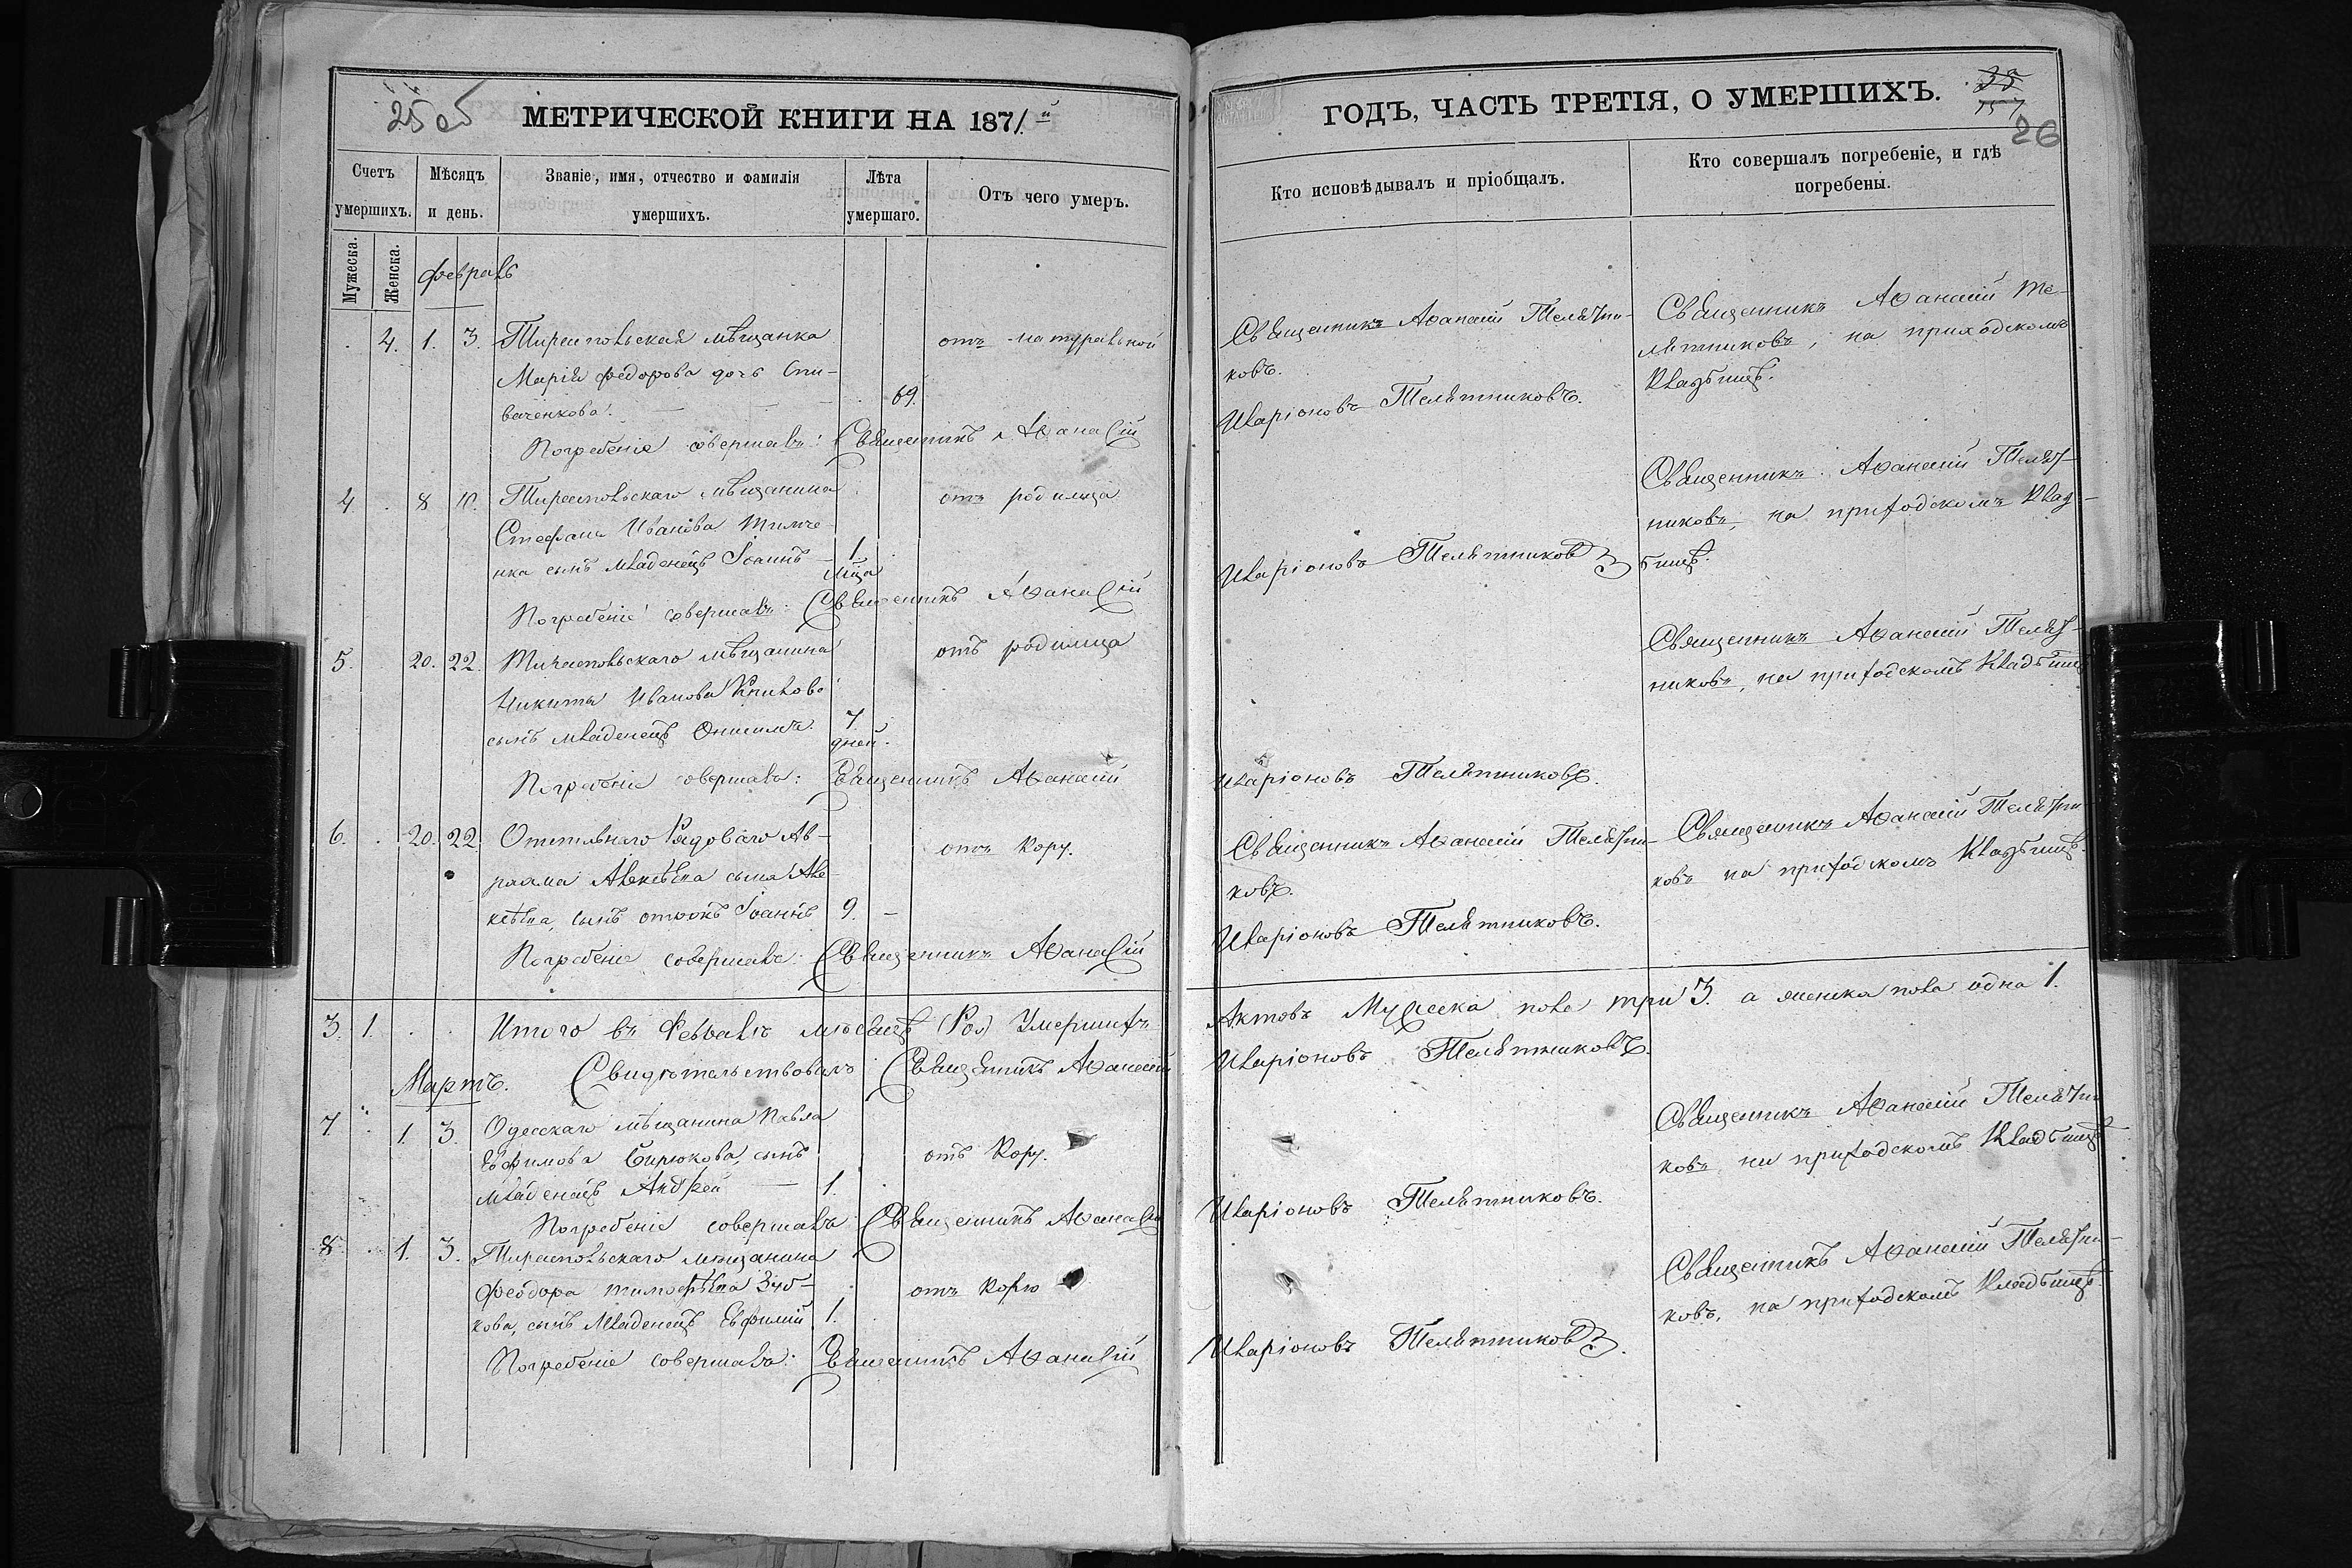 25 об
МЕТРИЧЕСКОЙ КНИГИ НА 1871й
ГОДЪ, ЧАСТЬ ТРЕТІЯ, О УМЕРШИХЪ.
35
157
26
Счетъ умершихъ.
Мѣсяцъ и день.
Званіе, имя, отчество и фамилія умершихъ.
Лѣта умершаго.
Отъ чего умеръ.
Кто исповѣдывалъ и пріобщалъ.
Кто совершалъ погребеніе, и гдѣ погребены.
Мужеска.
Женска.
февраль
4. 1. 3. Тираспольская мѣщанка отъ натуральной
Марія Федорова дочь Спи-
ваченкова. 69.
Священникъ Аѳанасій Телятни-
ковъ.
Священникъ Аѳанасій Те-
лятниковъ, на приходскомъ
кладбищѣ.
Погребеніе совершалъ: Священникъ Аѳанасій Иларіоновъ Телятниковъ.
4. 8 10. Тираспольскаго мѣщанина отъ родимца
Стефана Иванова Тимче-
нка сынъ младенецъ Іоаннъ 1. мца
Священникъ Аѳанасій Телят-
никовъ, на приходскомъ клад-
бищѣ.
Погребеніе совершалъ: Священникъ Аѳанасій Иларіоновъ Телятниковъ
5. 20. 22. Тираспольскаго мѣщанина отъ родимца
Никиты Иванова
сынъ младенецъ Онисимъ. 7. дней.
Священникъ Аѳанасій Телят-
никовъ, на приходскомъ кладбищѣ
Погребеніе совершалъ: Священникъ Аѳанасій Иларіоновъ Телятниковъ.
6. 20. 22 Рядоваго Ав- отъ кору.
раама Алексѣева сына Але-
ксѣева, сынъ отрокъ Іоаннъ 9. -
Священникъ Аѳанасій Телятни-
ковъ.
Священникъ Аѳанасій Телятни-
ковъ на приходскомъ кладбищѣ.
Погребеніе совершалъ: Священникъ Аѳанасій Иларіоновъ Телятниковъ.
3. 1. Итого въ Февралѣ мѣсяцѣ Умершихъ Актовъ Мужеска пола три 3. а женска пола одна 1.
Свидѣтельствовалъ Священникъ Аѳанасій Иларіоновъ Телятниковъ.
Мартъ.
7. 1. 3. Одесскаго мѣщанина Павла
Евфимова Бирюкова, сынъ отъ кору.
младенецъ Андрей — 1.
Священникъ Аѳанасій Телятни-
ковъ, на приходскомъ кладбищѣ
Погребеніе совершалъ: Священникъ Аѳанасій Иларіоновъ Телятниковъ.
8. 1. 3. Тираспольскаго мѣщанина
Феодора Тимофѣева Зуб- отъ корю
кова, сынъ младенецъ Евфимій 1.
Священникъ Аѳанасій Телятни-
ковъ, на приходскомъ кладбищѣ.
Погребеніе совершалъ: Священникъ Аѳанасій Иларіоновъ Телятниковъ.